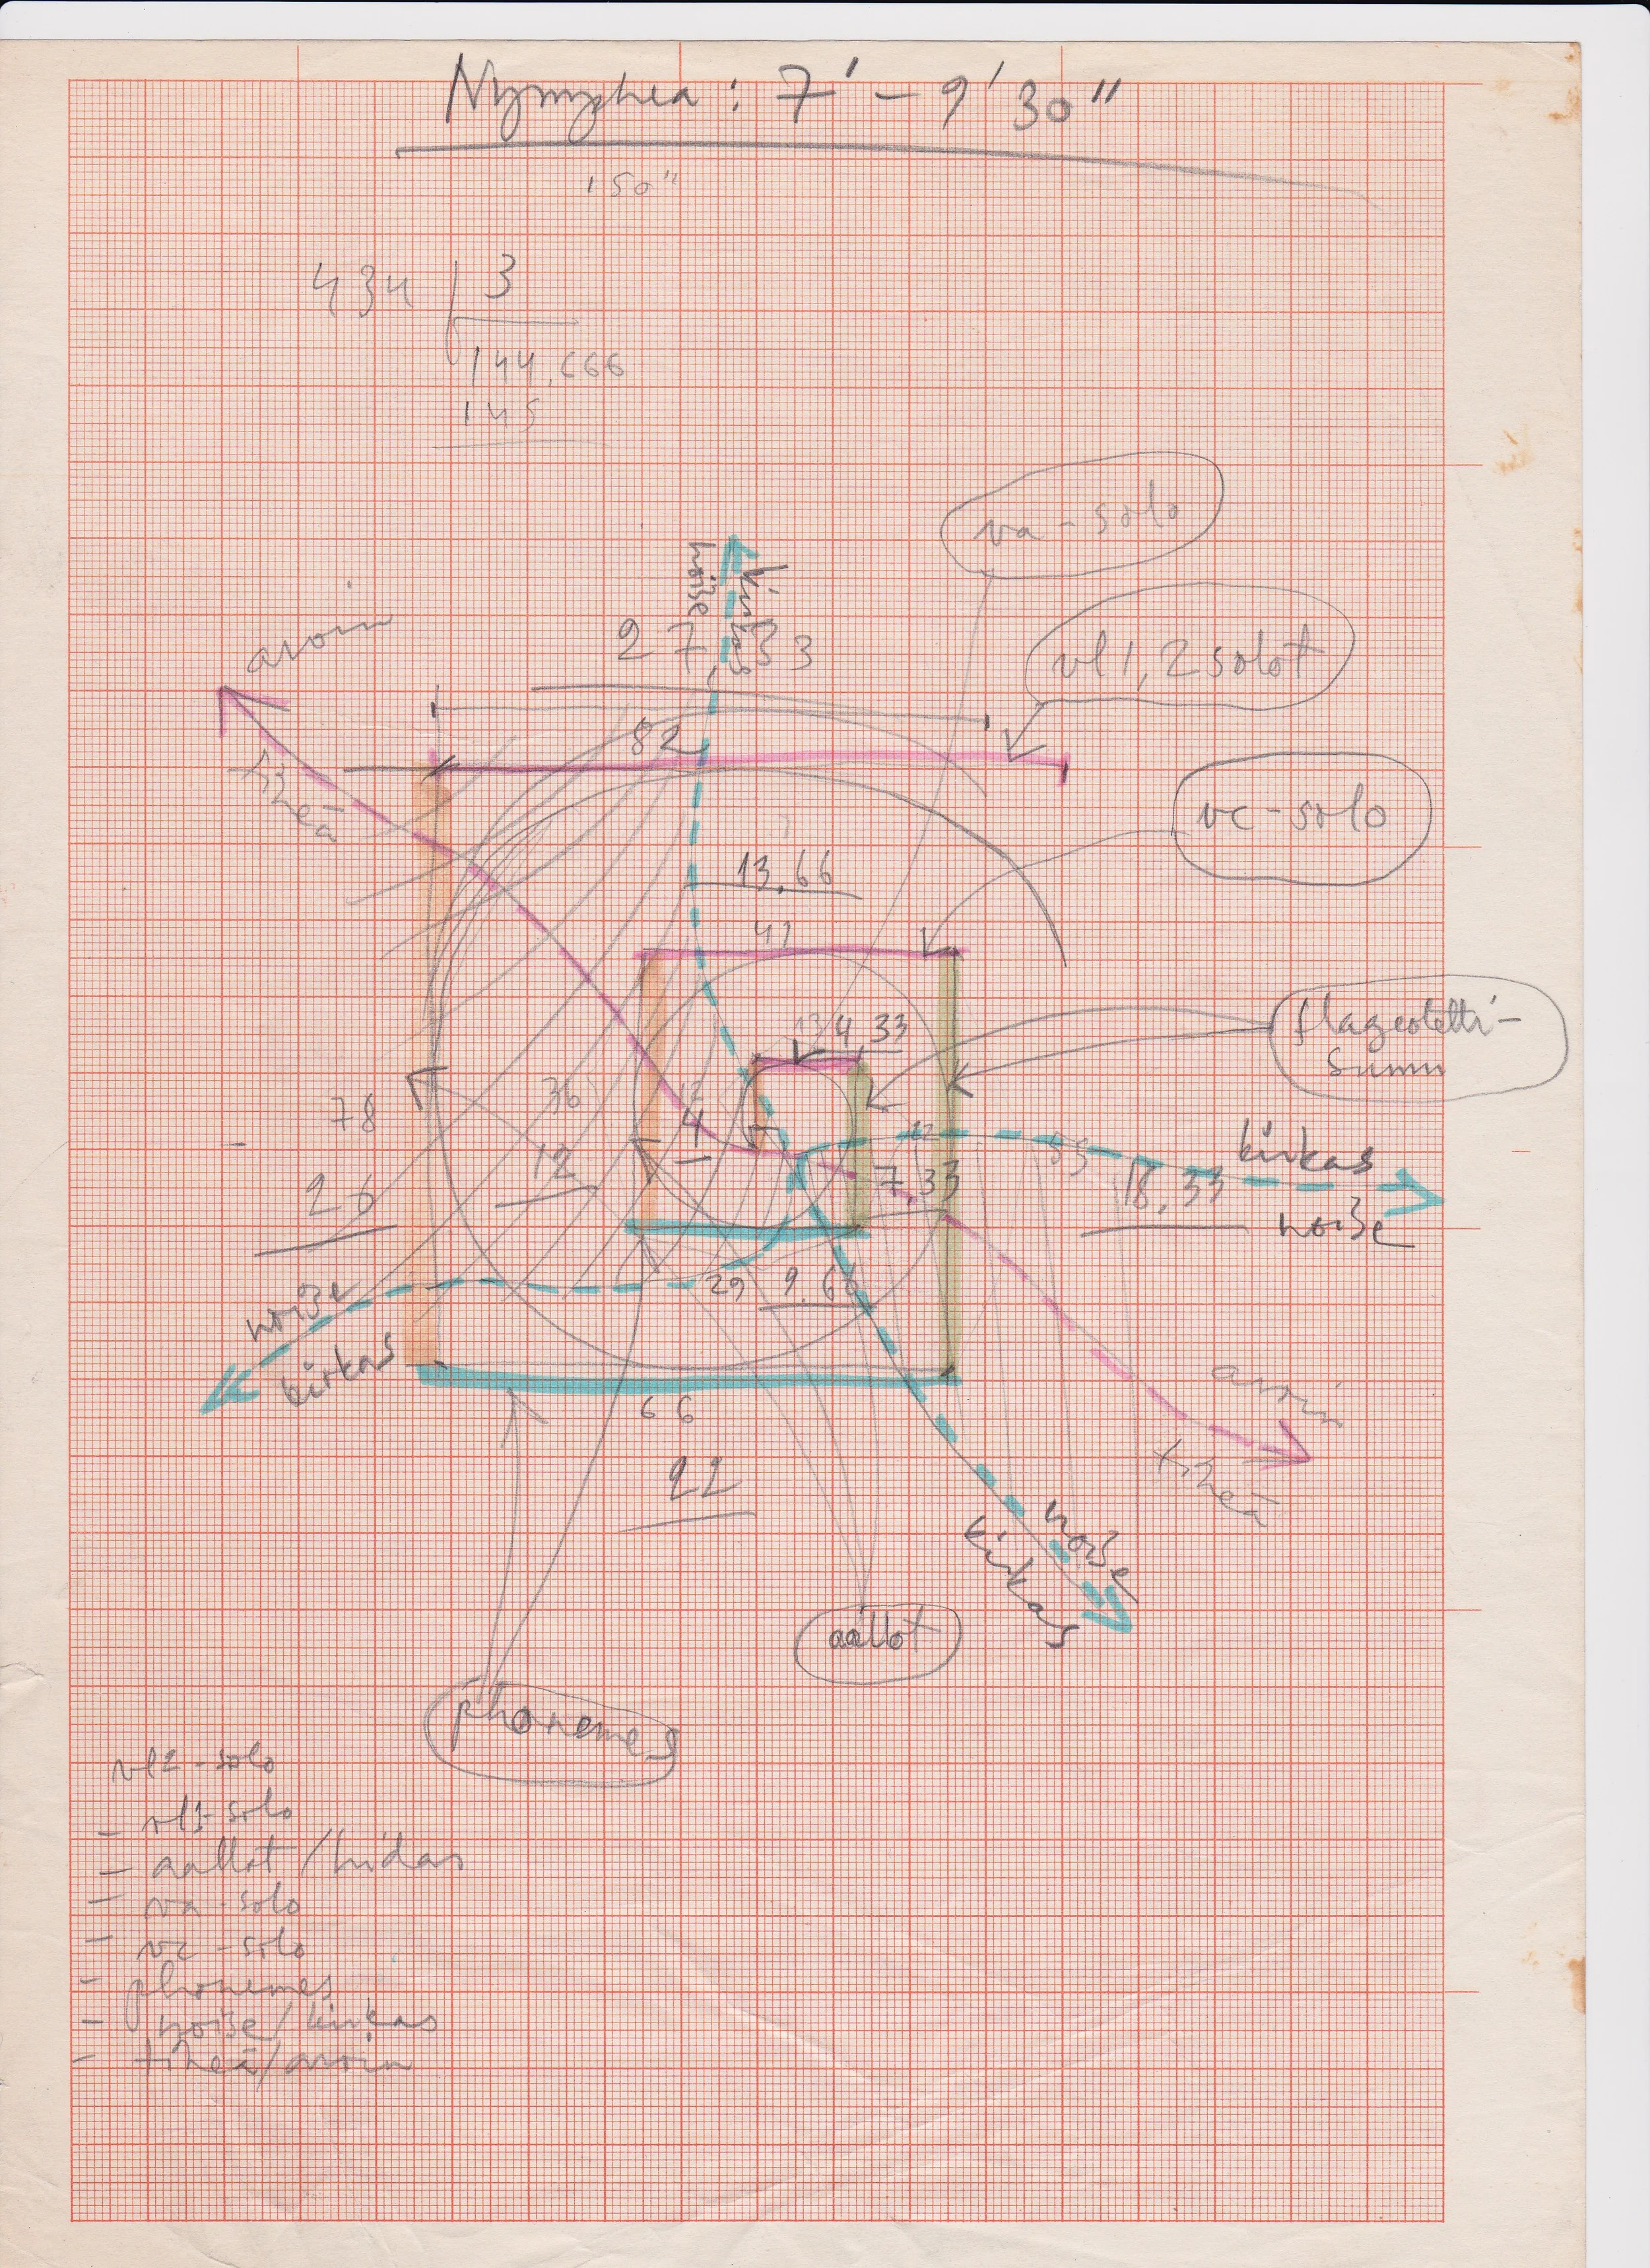 Nymphea : 7' - 9'30"
150"
434 3
144,666
145
va-solo
noise
kirkas
27,33
vl 1,2 solot
avoin
82
tiheä
vc-solo
13,66
41
flageoletti-
summ
13 4,33
78
36
12
12
4
22
55
kirkas
26
7,33
18,33
noise
noise
29 9,66
kirkas
avoin
66
tiheä
22
noise
kirkas
aallot
phonemes
vl2-solo
- vl1-solo
- aallot / hidas
- va-solo
- vc-solo
- phonemes
- noise / kirkas
- tiheä / avoin